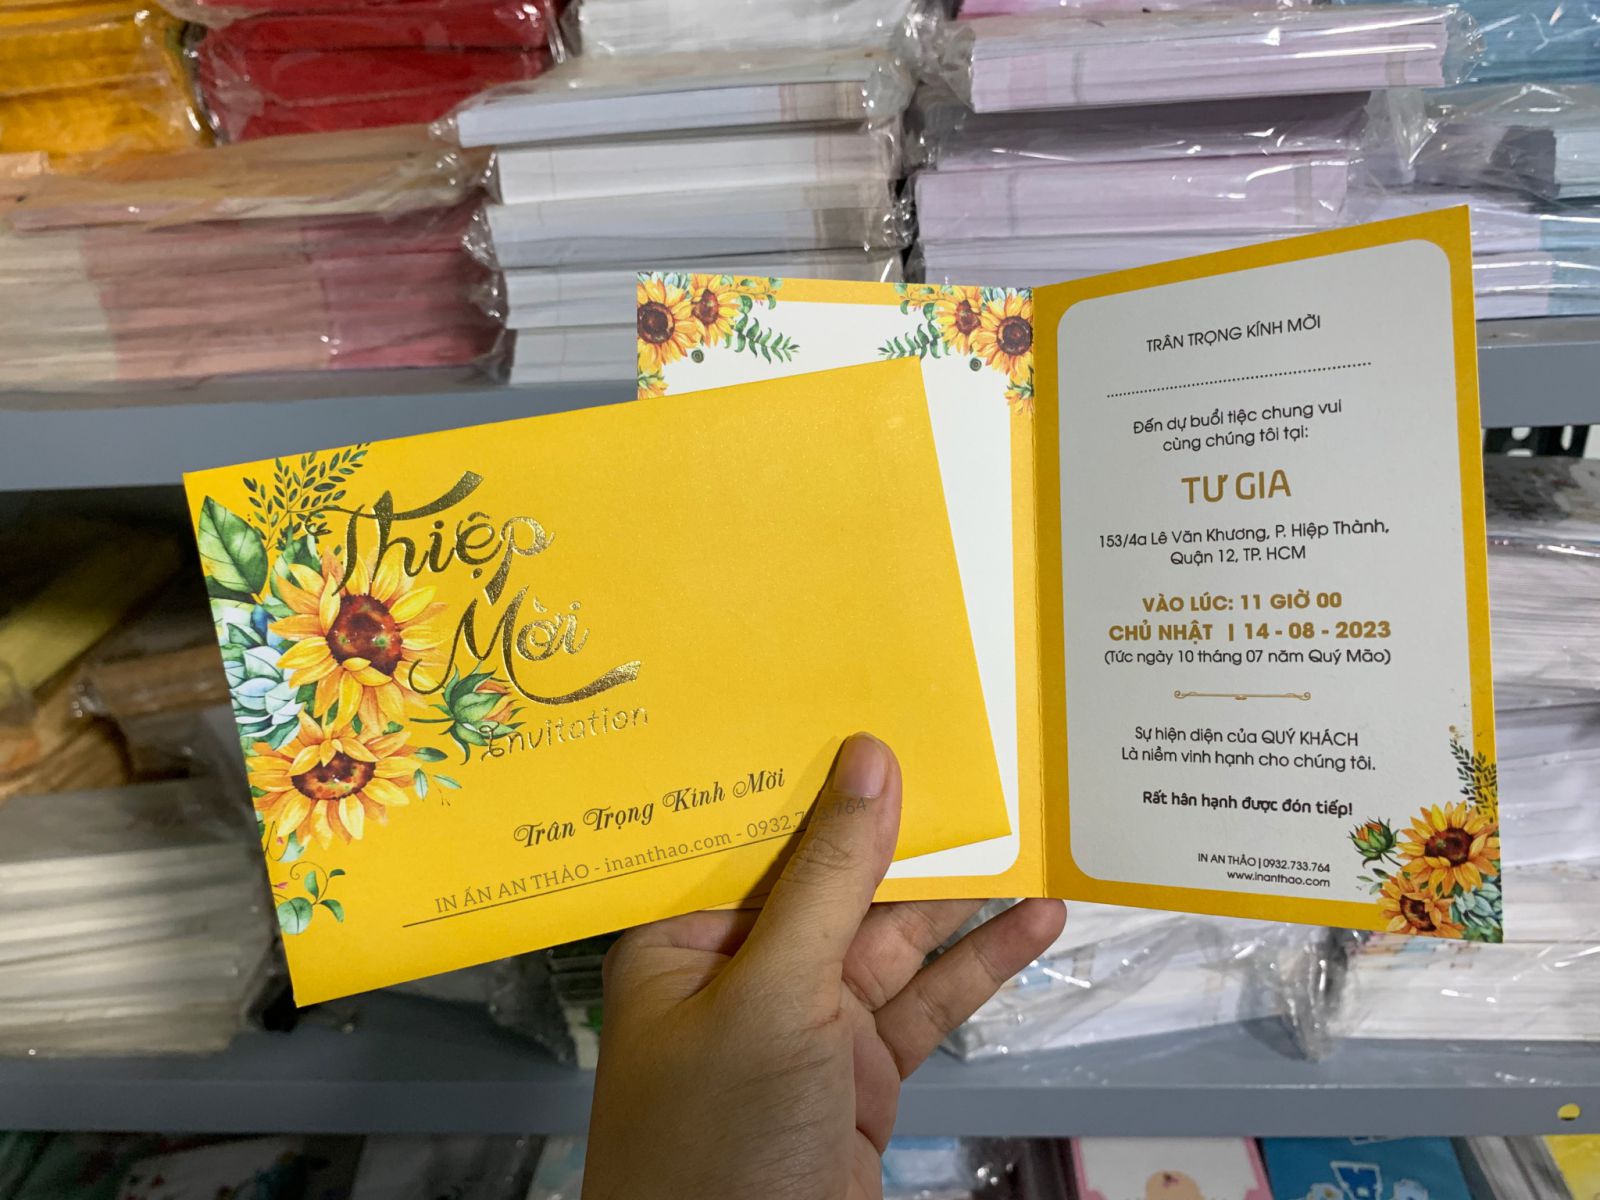 Thiệp
Mời
Invitation
Trân Trọng Kính Mời
IN ẤN AN THẢO - inanthao.com - 0932.7 3.764
TRÂN TRỌNG KÍNH MỜI
Đến dự buổi tiệc chung vui
cùng chúng tôi tại:
TƯ GIA
153/4a Lê Văn Khương, P. Hiệp Thành,
Quận 12, TP. HCM
VÀO LÚC: 11 GIỜ 00
CHỦ NHẬT | 14 - 08 - 2023
(Tức ngày 10 tháng 07 năm Quý Mão)
Sự hiện diện của QUÝ KHÁCH
Là niềm vinh hạnh cho chúng tôi.
Rất hân hạnh được đón tiếp!
IN AN THẢO | 0932.733.764
www.inanthao.com